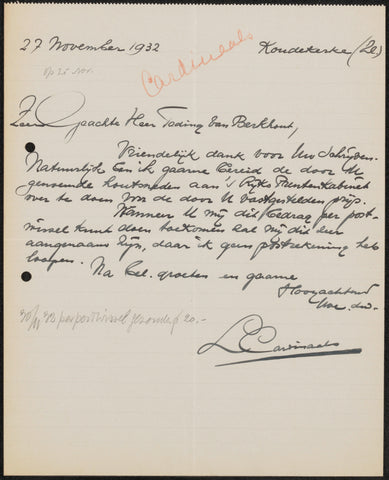 27 November 1932 Koudekerke (Ze)
op 25 Nov.
Cardinaals
Zeer Geachte Heer Teding van Berkhout,
Vriendelijk dank voor Uw schrijven.
Natuurlijk ben ik gaarne bereid de door U
genoemde houtsneden aan 's Rijks Prentenkabinet
over te doen voor de door U vastgestelde prijs.
Wanneer U mij dit bedrag per post-
wissel kunt doen toekomen zal mij dit zeer
aangenaam zijn, daar ik geen postrekening heb
loopen. Na bel. groeten en gaarne
Hoogachtend
Uw. dw.
30/11 '32 per postwissel gezonden f 20.-
L Cardinaals